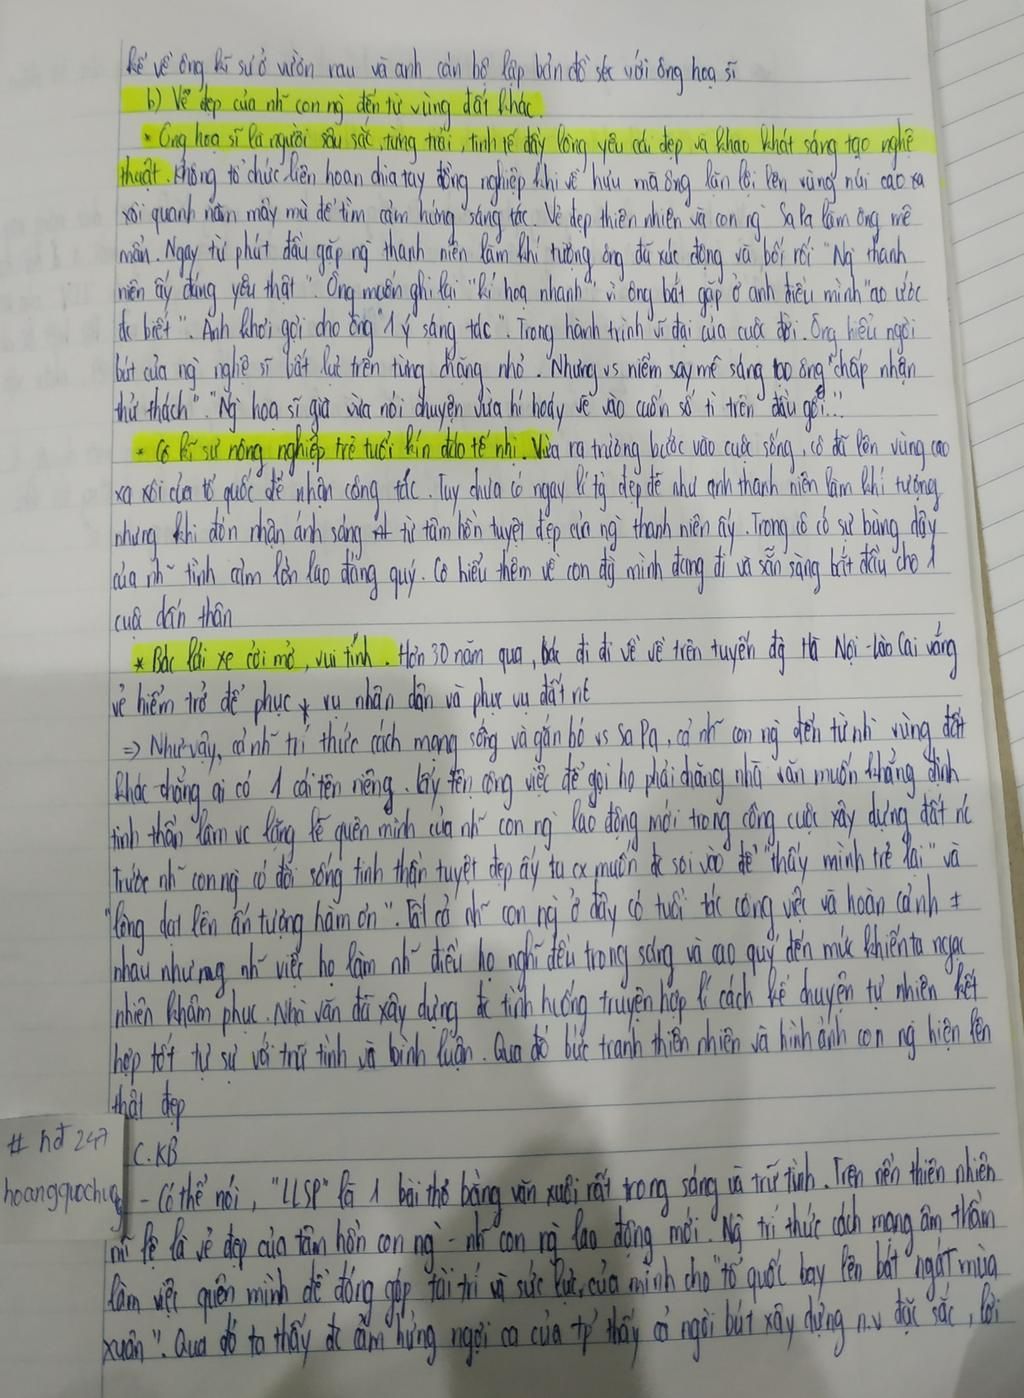 kể về ông kĩ sư ở vườn rau và anh cán bộ lập bản đồ sét với ông hoạ sĩ
b) Vẻ đẹp của nh~ con ng` đến từ vùng đất khác.
* Ông hoạ sĩ là người sâu sắc, từng trải, tinh tế đầy lòng yêu cái đẹp và khao khát sáng tạo nghệ
thuật. Không tổ chức liên hoan chia tay đồng nghiệp khi về hưu mà ông lặn lội lên vùng núi cao xa
xôi quanh năm mây mù để tìm cảm hứng sáng tác. Vẻ đẹp thiên nhiên và con ng` Sa Pa làm ông mê
mẩn. Ngay từ phút đầu gặp ng` thanh niên làm khí tượng ông đã xúc động và bối rối "Ng` thanh
niên ấy đáng yêu thật". Ông muốn ghi lại "kí hoạ nhanh" vì ông bắt gặp ở anh điều mình "ao ước
đc biết". Anh khơi gợi cho ông "1 ý sáng tác". Trong hành trình vĩ đại của cuộc đời. Ông hiểu ngòi
bút của ng` nghệ sĩ bất lực trên từng chặng nhỏ. Nhưng vs niềm say mê sáng tạo ông "chấp nhận
thử thách". "Ng` hoạ sĩ già vừa nói chuyện vừa hí hoáy vẽ vào cuốn sổ tì trên đầu gối..."
* Cô kĩ sư nông nghiệp trẻ tuổi kín đáo tế nhị. Vừa ra trường bước vào cuộc sống, cô đã lên vùng cao
xa xôi của tổ quốc để nhận công tác. Tuy chưa có ngay lí tg đẹp đẽ như anh thanh niên làm khí tượng
nhưng khi đón nhận ánh sáng từ tâm hồn tuyệt đẹp của ng` thanh niên ấy. Trong cô có sự bừng dậy
của nh~ tình cảm lớn lao đáng quý. Cô hiểu thêm về con đg` mình đang đi và sẵn sàng bắt đầu cho 1
cuộc dấn thân
* Bác lái xe cởi mở, vui tính. Hơn 30 năm qua, bác đi đi về về trên tuyến đg` Hà Nội - Lào Cai vắng
vẻ hiểm trở để phục vụ nhân dân và phục vụ đất nc
=> Như vậy, cả nh~ trí thức cách mạng sống và gắn bó vs SaPa, cả nh~ con ng` đến từ nh` vùng đất
khác chẳng ai có 1 cái tên riêng. Lấy tên công việc để gọi họ phải chăng nhà văn muốn khẳng định
tinh thần làm vc lặng lẽ quên mình của nh~ con ng` lao động mới trong công cuộc xây dựng đất nc
Trước nh~ con ng` có đời sống tinh thần tuyệt đẹp ấy ta cx muốn đc soi vào để "thấy mình trẻ lại" và
"lòng dạt lên ấn tượng hàm ơn". Tất cả nh~ con ng` ở đây có tuổi tác công việc và hoàn cảnh ±
nhau nhưng nh~ việc họ làm nh~ điều họ nghĩ đều trong sáng và cao quý đến mức khiến ta ngạc
nhiên khâm phục. Nhà văn đã xây dựng đc tình huống truyện hợp lí cách kể chuyện tự nhiên kết
hợp tốt tự sự với trữ tình và bình luận. Qua đó bức tranh thiên nhiên và hình ảnh con ng` hiện lên
thật đẹp
C. KB
- Có thể nói, "LLSP" là 1 bài thơ bằng văn xuôi rất trong sáng và trữ tình. Trên nền thiên nhiên
mĩ lệ là vẻ đẹp của tâm hồn con ng` - nh~ con ng` lao động mới. Ng` trí thức cách mạng âm thầm
làm việc quên mình để đóng góp tài trí và sức lực của mình cho "tổ quốc bay lên bát ngát mùa
xuân". Qua đó ta thấy đc cảm hứng ngợi ca của tp' thấy cả ngòi bút xây dựng n.v đặc sắc, lời
# hđ 247
hoangquochu